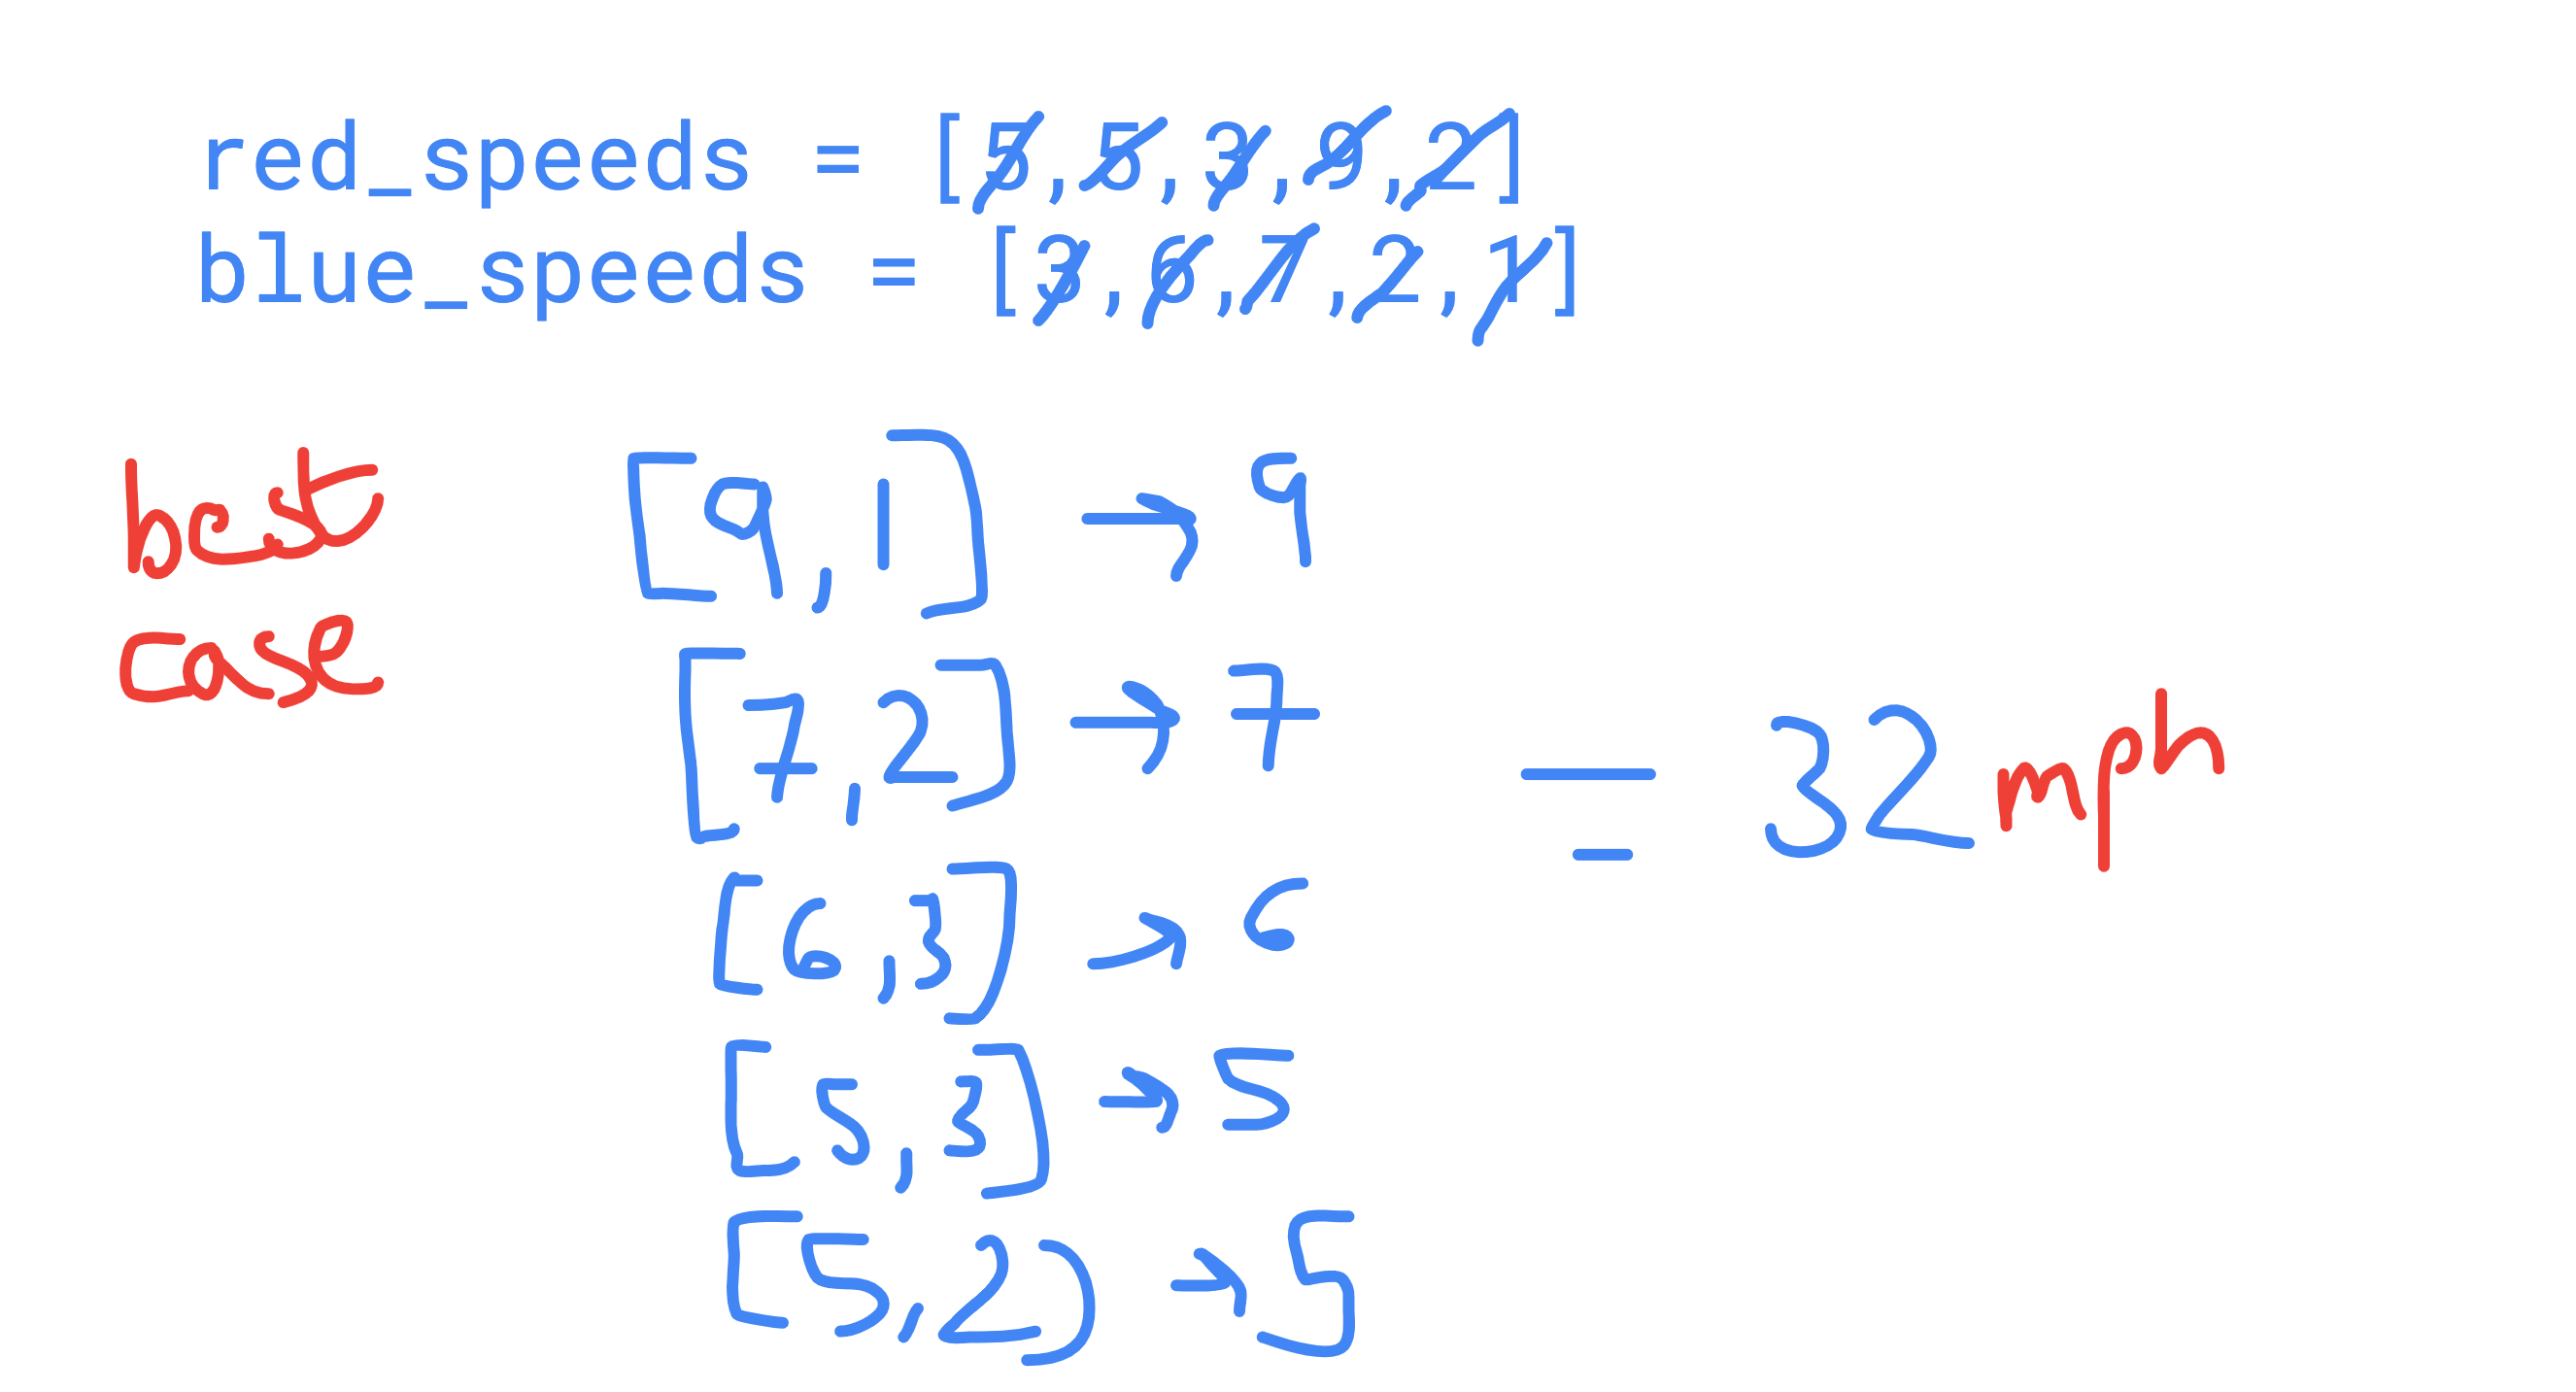 red_speeds = [5,5,3,9,2]
blue_speeds = [3,6,7,2,1]
best
case
[9,1] → 9
[7,2] → 7
= 32 mph
[6,3] → 6
[5,3] → 5
[5,2) → 5